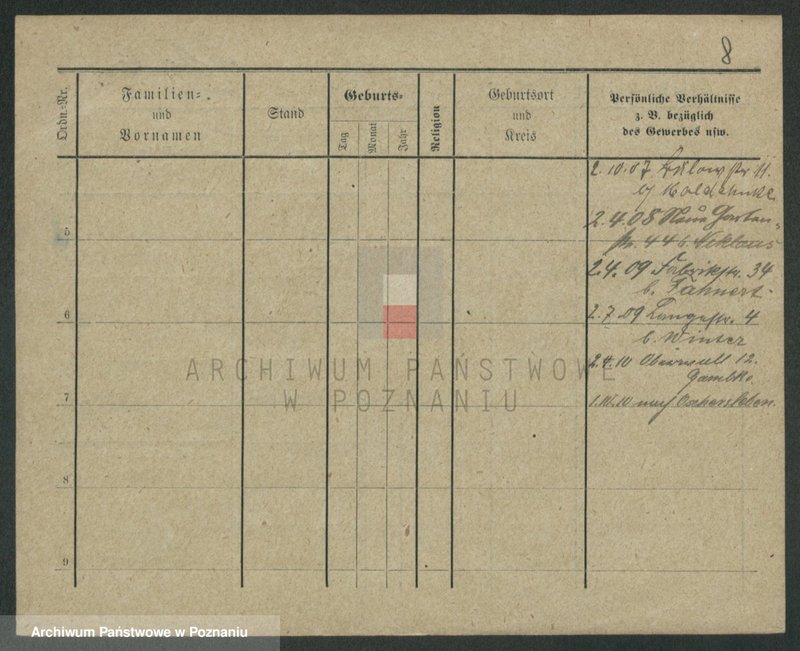 8
Ordn.-Nr.
Familien=
und
Vornamen
Stand
Geburts=
Tag
Monat
Jahr
Religion
Geburtsort
und
Kreis
Persönliche Verhältnisse
z. B. bezüglich
des Gewerbes usw.
2.10.07 Bülowstr 11.
2.4.08 Neue Garten-
5
str. 44 b. Niklaus
2.4.09 Fabrikstr. 34
b. Fähnert
2.7.09 Langestr. 4
6
b. Winter
2.4.10 12.
1.10.10 nach Oschersleben
7
8
9
ARCHIWUM PAŃSTWOWE
W POZNANIU
Archiwum Państwowe w Poznaniu